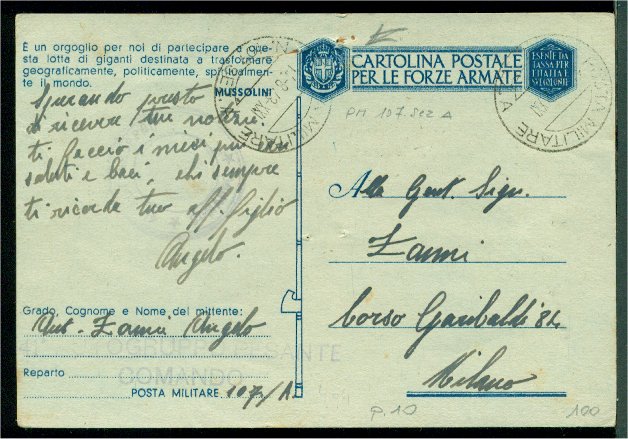 È un orgoglio per noi di partecipare a que-
sta lotta di giganti destinata a trasformare
geograficamente, politicamente, spiritualmen-
te il mondo.
MUSSOLINI
Sperando presto
di ricevere tue notizie.
ti faccio i miei più
saluti e baci, chi sempre
ti ricorda tuo aff. figlio
Angelo.
Grado, Cognome e Nome del mittente:
Zanni Angelo
Reparto
COMANDO
POSTA MILITARE 107/A
CARTOLINA POSTALE
PER LE FORZE ARMATE
ESENTE DA
TASSA PER
L'ITALIA E
SUE COLONIE
POSTA MILITARE
PM 107 sez A
Alla Gent. Sign.
Zanni
Corso Garibaldi 84
Milano
p. 10
100